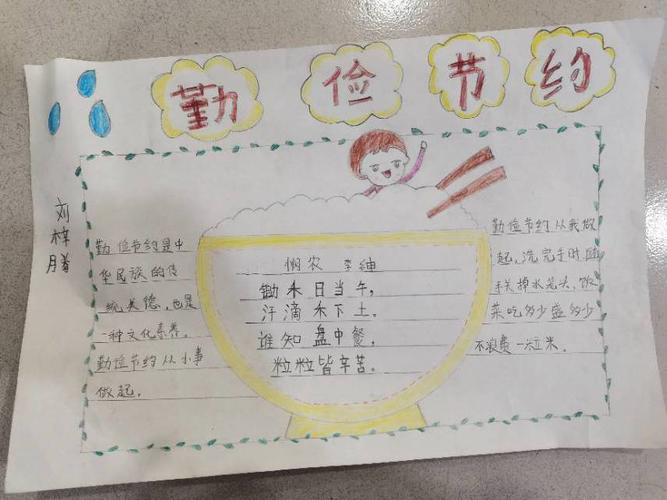 勤俭节约
刘梓
勤俭节约是中
华民族的传
统美德,也是
一种文化素养。
勤俭节约从小事
做起。
悯农 李绅
锄禾日当午,
汗滴禾下土。
谁知盘中餐,
粒粒皆辛苦。
勤俭节约从我做
起,洗完手时随
手关掉水龙头,饭
菜吃多少盛多少
不浪费一粒米。